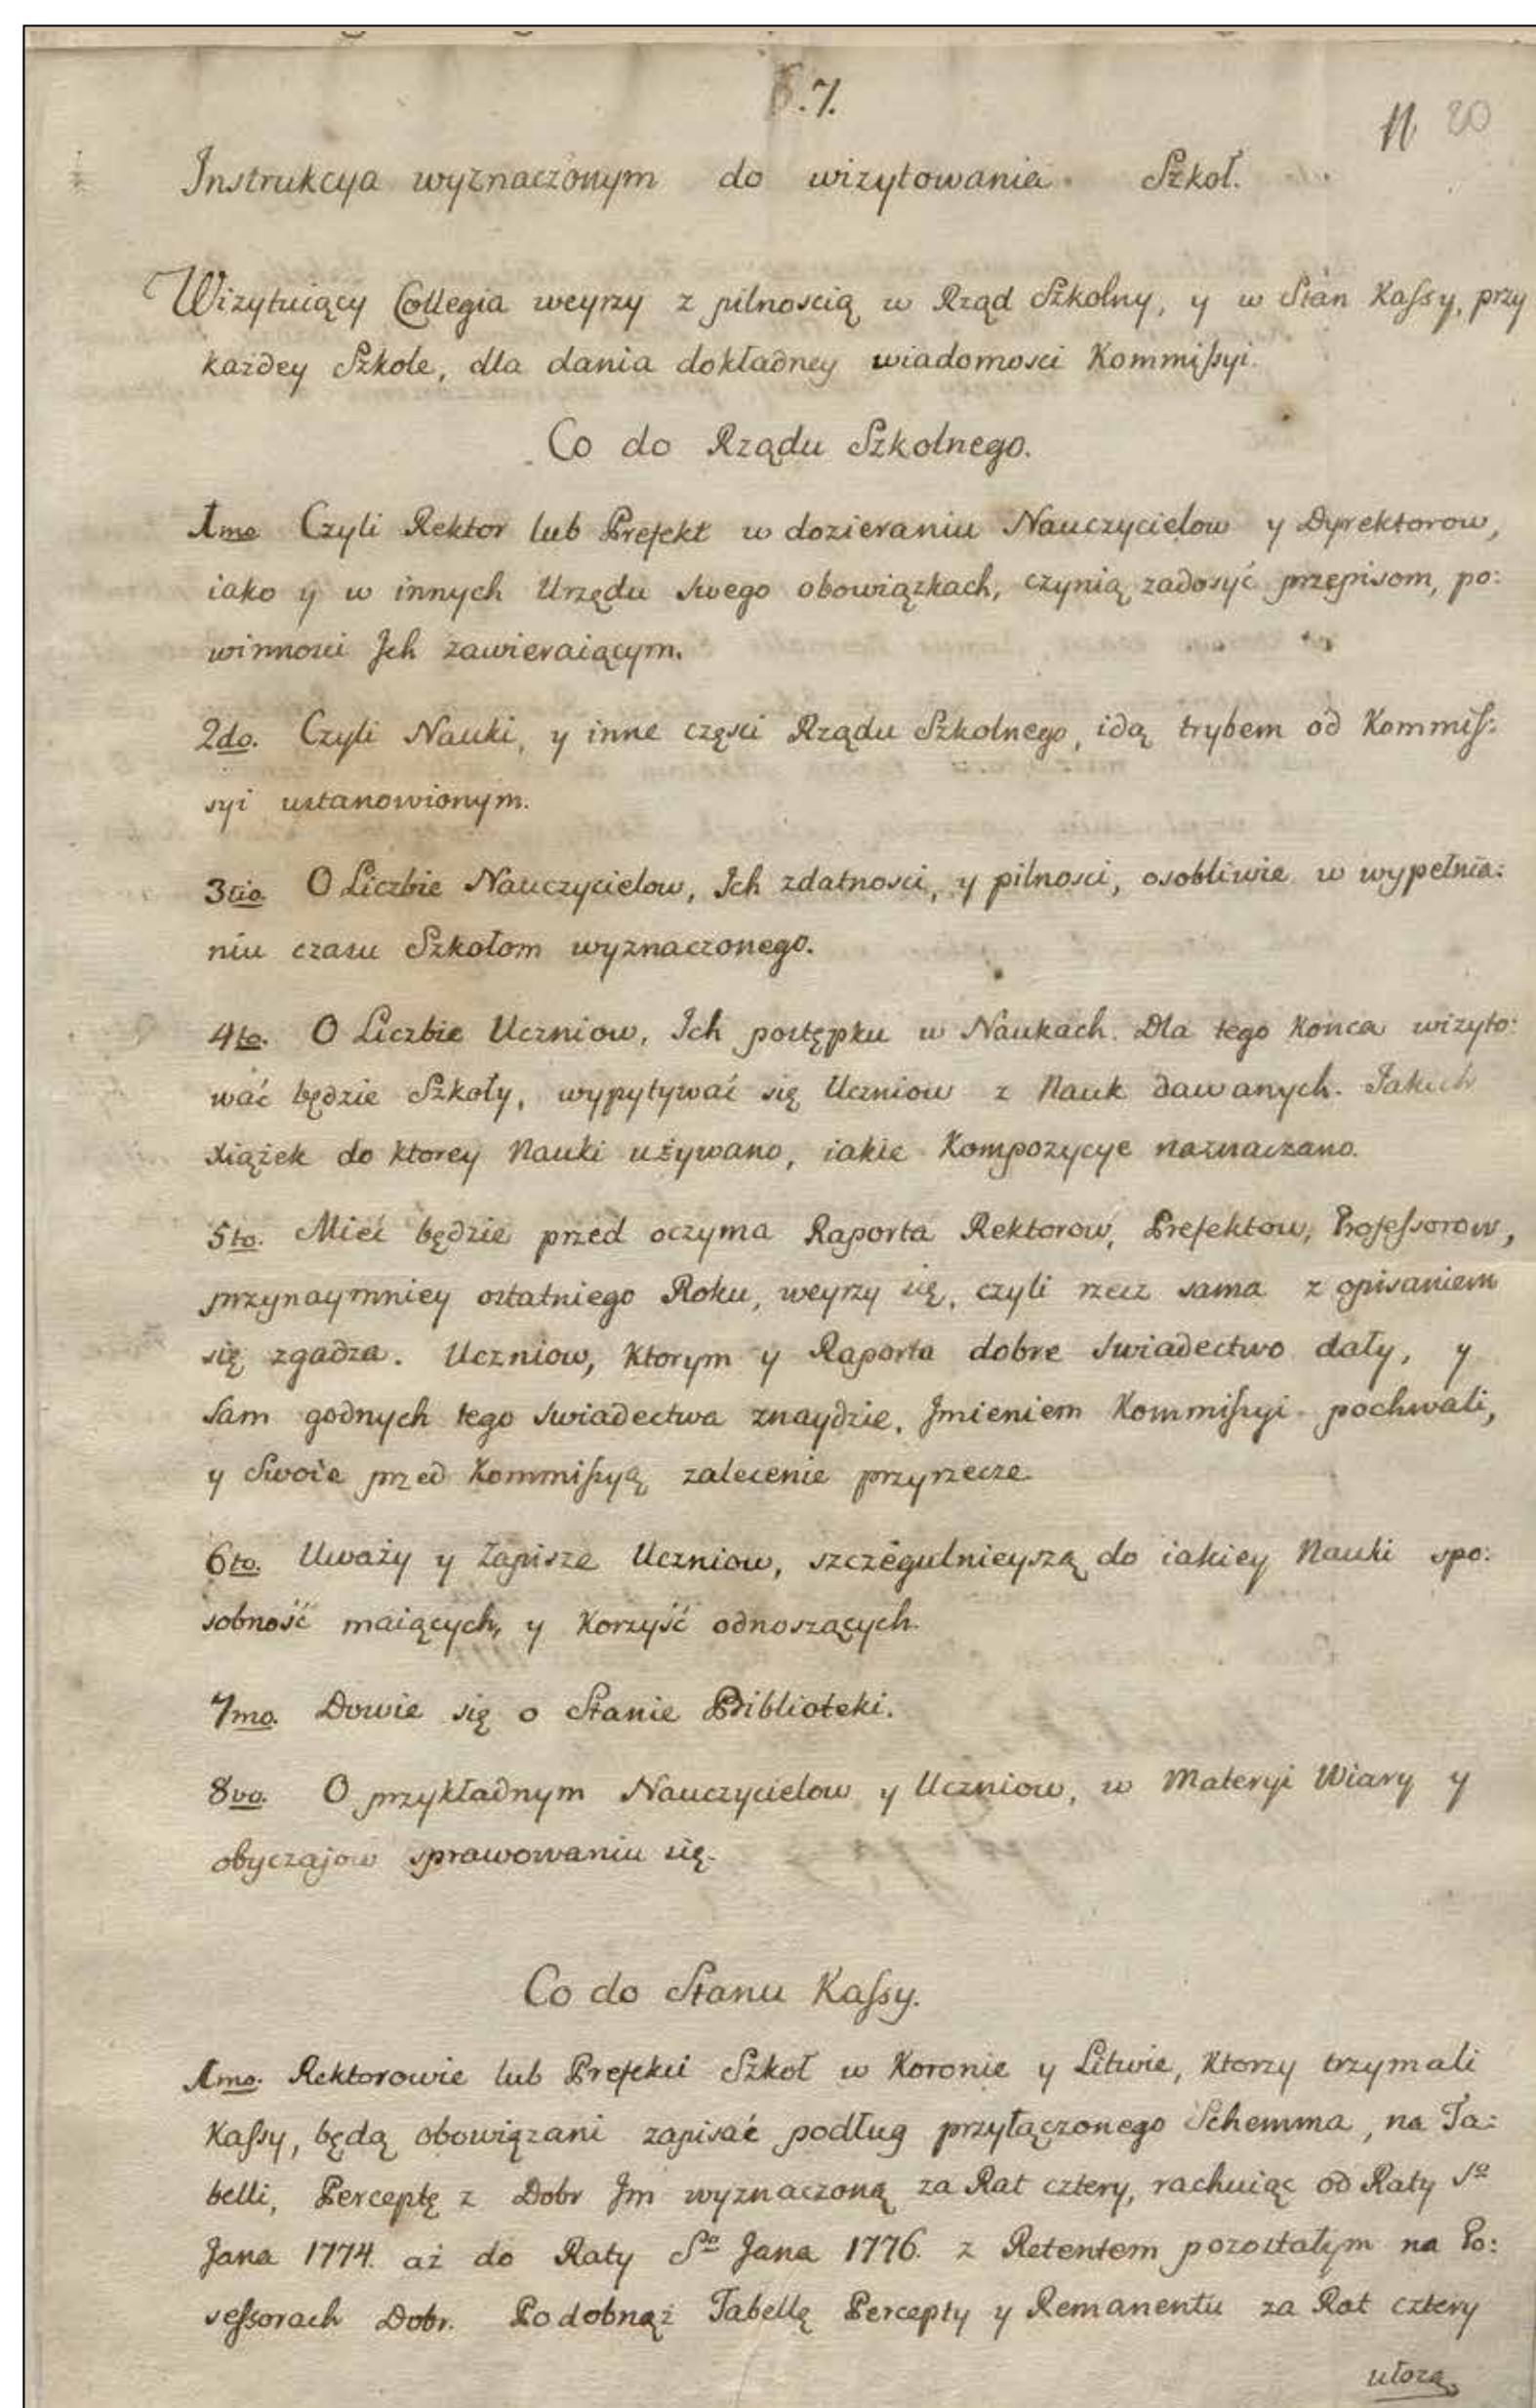 6.7.
11 20
Instrukcya wyznaczonym do wizytowania Szkoł.
Wizytuiący Collegia weyrzy z pilnoscią w Rząd Szkolny, y w Stan Kaſsy, przy
każdey Szkole, dla dania dokładney wiadomosci Kommiſsyi.
Co do Rządu Szkolnego.
1mo Czyli Rektor lub Prefekt w dozieraniu Nauczycielow y Dyrektorow,
iako y w innych Urzędu swego obowiązkach, czynią zadosyć przepisom, po:
winnosci Ich zawieraiącym.
2do. Czyli Nauki, y inne części Rządu Szkolnego, idą trybem od Kommiſ:
syi ustanowionym.
3tio O Liczbie Nauczycielow, Ich zdatnosci, y pilnosci, osobliwie w wypełnia:
niu czasu Szkołom wyznaczonego.
4to. O Liczbie Uczniow, Ich postępku w Naukach. Dla tego Konca wizyto:
wać będzie Szkoły, wypytywać się Uczniow z Nauk dawanych. Jakich
xiążek do Ktorey Nauki używano, iakie Kompozycye naznaczano.
5to. Mieć będzie przed oczyma Raporta Rektorow, Prefektow, Profeſsorow,
przynaymniey ostatniego Roku, weyrzy się, czyli rzecz sama z opisaniem
się zgadza. Uczniow, Ktorym y Raporta dobre swiadectwo dały, y
Sam godnych tego swiadectwa znaydzie, Imieniem Kommiſsyi pochwali,
y Swoie przed Kommiſsyą zalecenie przyrzecze.
6to. Uważy y Zapisze Uczniow, szczegulnieyszą do iakiey Nauki spo:
sobność maiących, y Korzyść odnoszących.
7mo. Dowie się o Stanie Biblioteki.
8vo. O przykładnym Nauczycielow y Uczniow, w Materyi Wiary y
obyczajow sprawowaniu się.
Co do Stanu Kaſsy.
1mo. Rektorowie lub Prefekci Szkoł w Koronie y Litwie, Ktorzy trzymali
Kaſsy, będą obowiązani zapisać podług przyłączonego Schemma, na Ta:
belli, Perceptę z Dobr Im wyznaczoną za Rat cztery, rachuiąc od Raty Sº
Jana 1774. aż do Raty Sº Jana 1776. z Retentem pozostałym na Po:
seſsorach Dobr. Podobnąż Tabellę Percepty y Remanentu za Rat cztery
ułożą